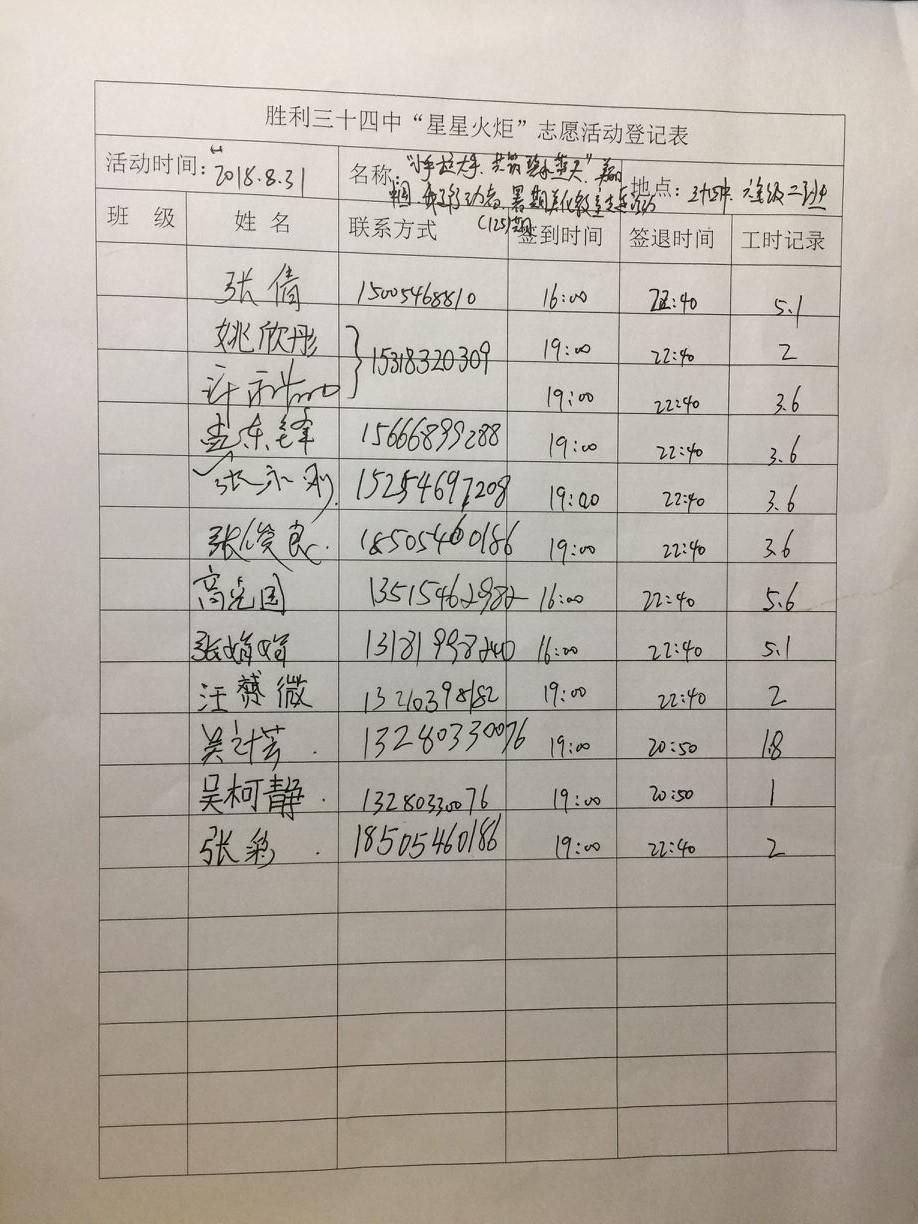 胜利三十四中“星星火炬”志愿活动登记表
活动时间： 2018.8.31 名称：“小手拉大手 共筑碧水蓝天” 美丽 地点：三十四中 六年级二班
中国 我是行动者 暑期美化教室志愿活动
(125)
班 级 姓 名 联系方式 签到时间 签退时间 工时记录
张倩 15005468810 16:00 22:40 5.1
姚欣彤 15318320309 19:00 22:40 2
许 19:00 22:40 3.6
孟东锋 15666899288 19:00 22:40 3.6
张永刚. 15254697208 19:00 22:40 3.6
张俊良. 18505460186 19:00 22:40 3.6
高光国 13515462982 16:00 22:40 5.6
张娟娟 13181998240 16:00 22:40 5.1
汪赟微 13210398182 19:00 22:40 2
吴计芳. 13280330076 19:00 20:50 1.8
吴柯静. 13280330076 19:00 20:50 1
张彩. 18505460186 19:00 22:40 2